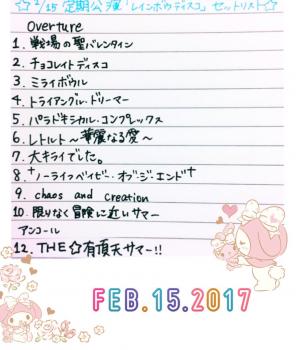 ☆2/15 定期公演「レインボウディスコ」セットリスト☆
Overture
1. 戦場の聖バレンタイン
2. チョコレイトディスコ
3. ミライボウル
4. トライアングル・ドリーマー
5. パラドキシカル・コンプレックス
6. レトルト〜華麗なる愛〜
7. 大キライでした。
8. †ノーライフベイビー・オブ・ジ・エンド†
9. chaos and creation
10. 限りなく冒険に近いサマー
アンコール
12. THE☆有頂天サマー!!
FEB.15.2017